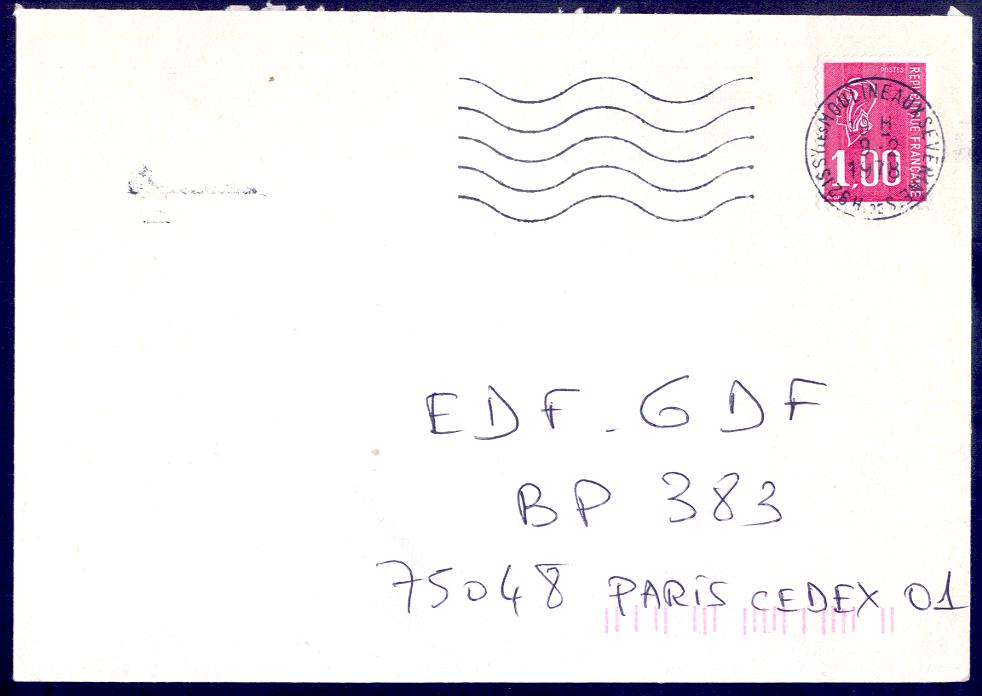 POSTES
REPUBLIQUE FRANCAISE
1,00
92 ISSY LES MOULINEAUX
H. DE S.
H
1978
EDF-GDF
BP 383
75048 PARIS CEDEX 01